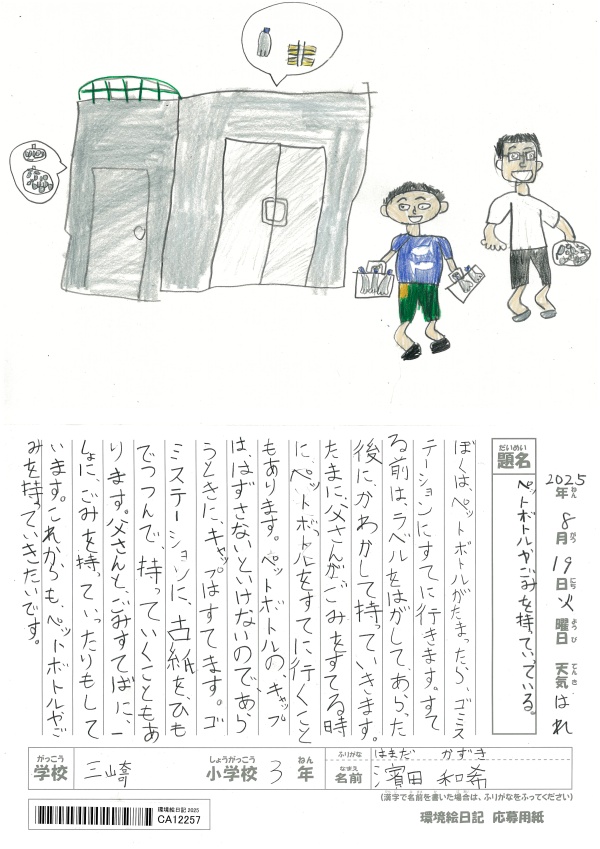 2025年ねん 8月がつ 19日にち 火曜日ようび 天気てんき はれ
題名だいめい ペットボトルやごみを持っていっている。
ぼくは、ペットボトルがたまったら、ゴミス
テーションにすてに行きます。すて
る前は、ラベルをはがして、あらった
後に、かわかして持っていきます。
たまに、父さんがごみをすてる時
に、ペットボトルをすてに行くこと
もあります。ペットボトルのキャップ
ははずさないといけないので、あら
うときに、キャップはすてます。ゴ
ミステーションに、古紙を、ひも
でつつんで、持っていくこともあ
ります。父さんと、ごみすてばに、一
しょに、ごみを持っていったりもして
います。これからも、ペットボトルやご
みを持っていきたいです。
学校がっこう 三崎 小学校しょうがっこう 3年ねん
ふりがな はまだ かずき
名前なまえ 濱田 和希
(漢字で名前を書いた場合は、ふりがなをふってください)
環境絵日記2025
CA12257
環境絵日記 応募用紙